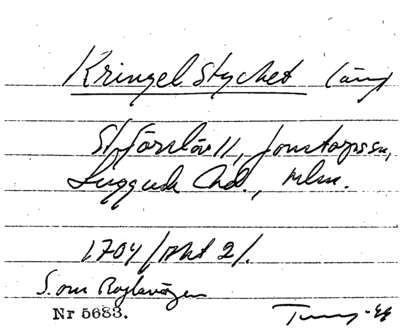 Kringelstycket (äng)
St. Görslöv 11, Jonstorps sn,
Luggude hd., Mlm.
1704 / akt 2 /.
S. om Roglavägen
Nr 5683.